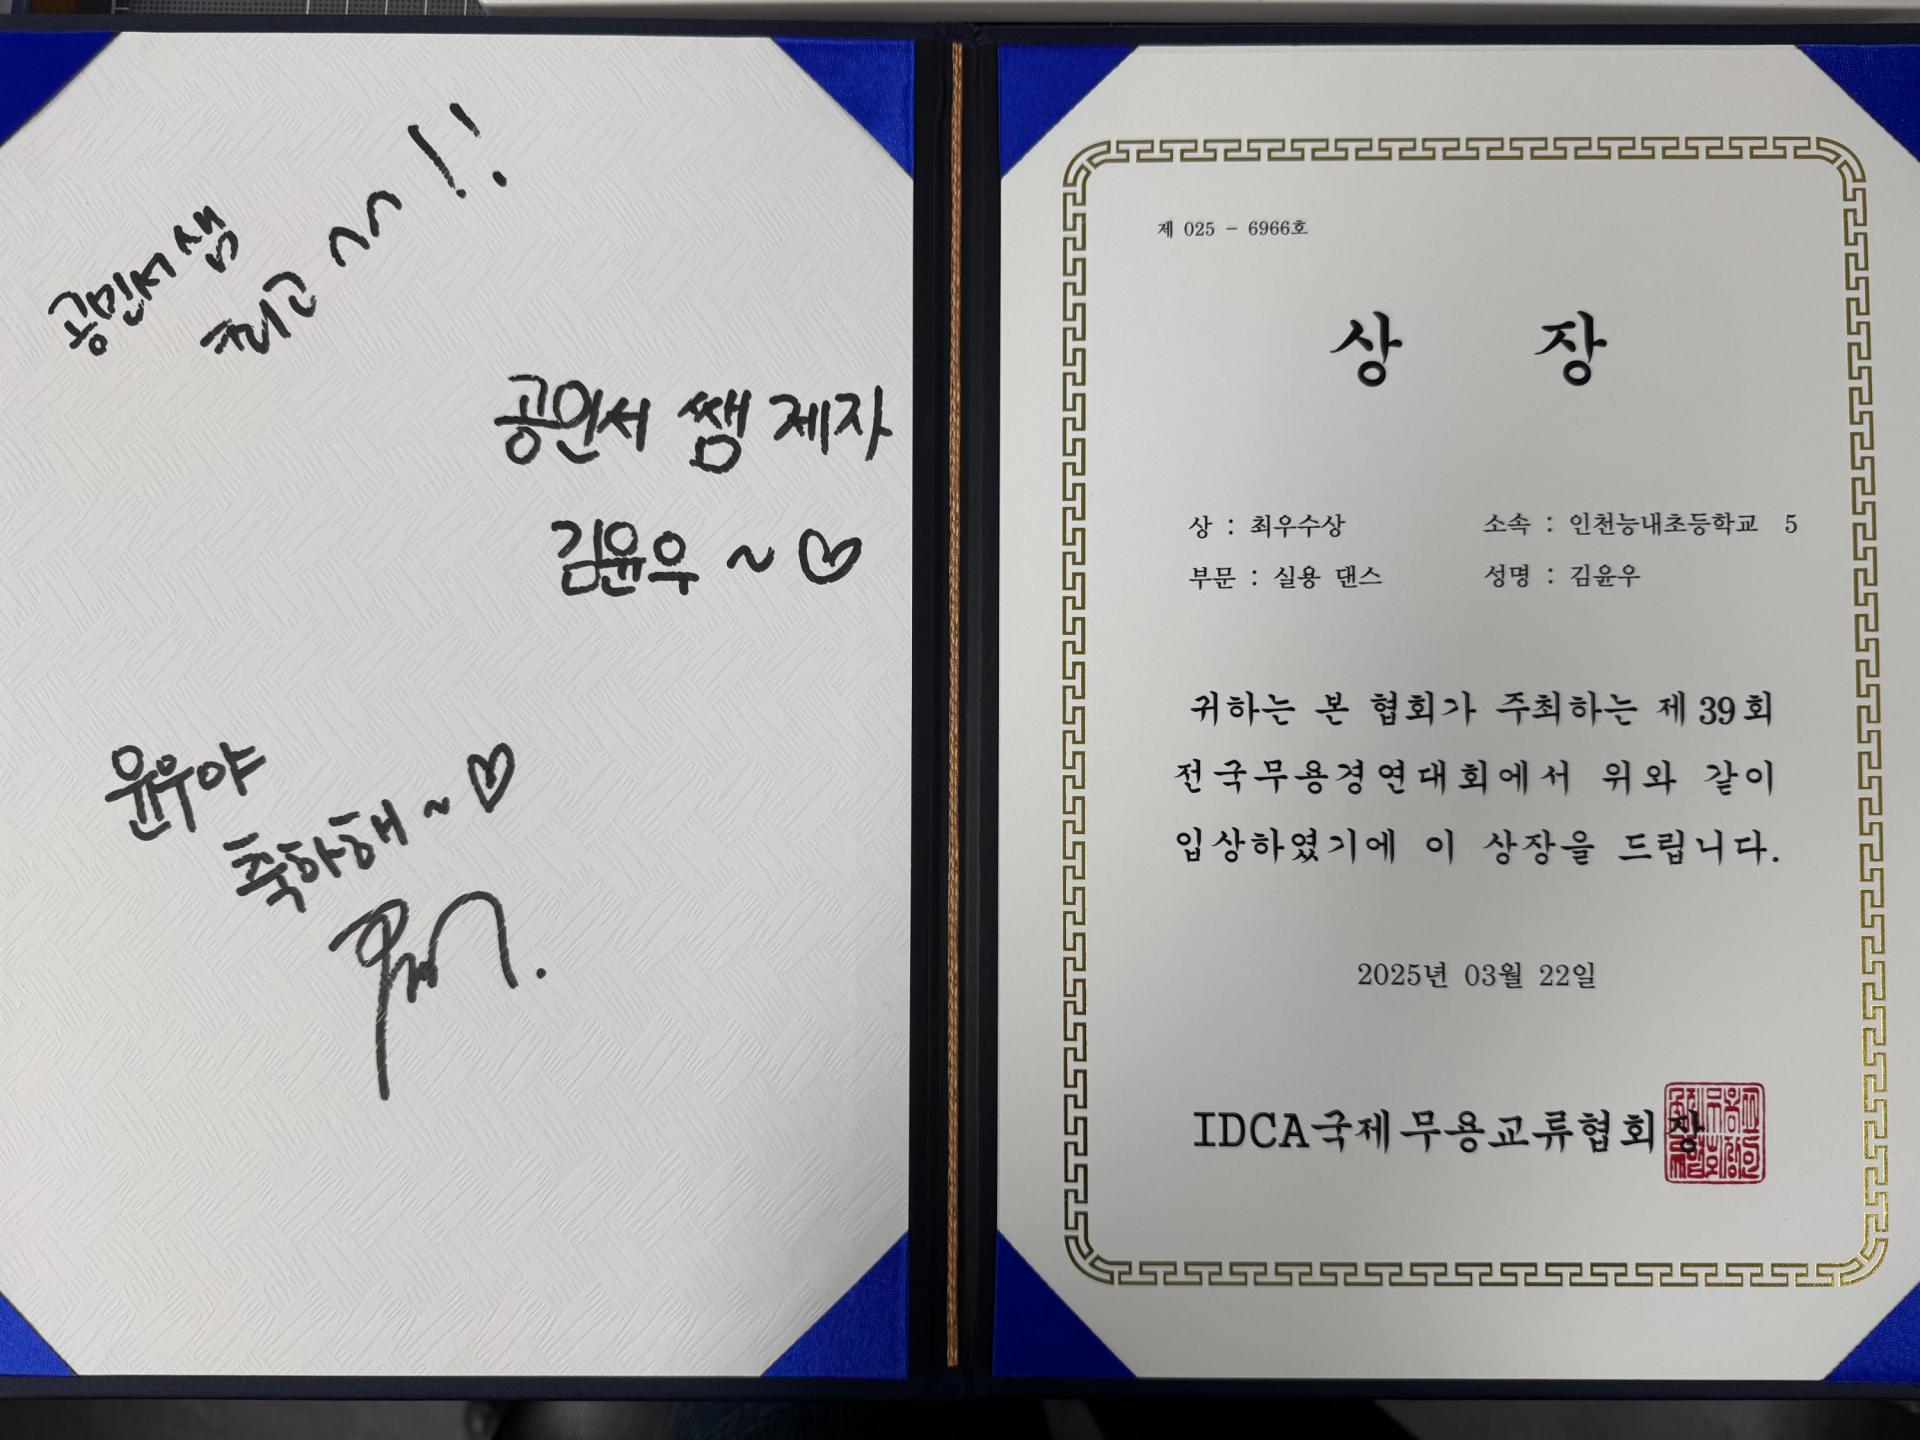 공민서 샘
최고 ~~!!
공민서 쌤 제자
김윤우 ~♡
윤우야
축하해~♡
제 025 - 6966호
상 장
상 : 최우수상 소속 : 인천능내초등학교 5
부문 : 실용 댄스 성명 : 김윤우
귀하는 본 협회가 주최하는 제39회
전국무용경연대회에서 위와 같이
입상하였기에 이 상장을 드립니다.
2025년 03월 22일
IDCA국제무용교류협회장